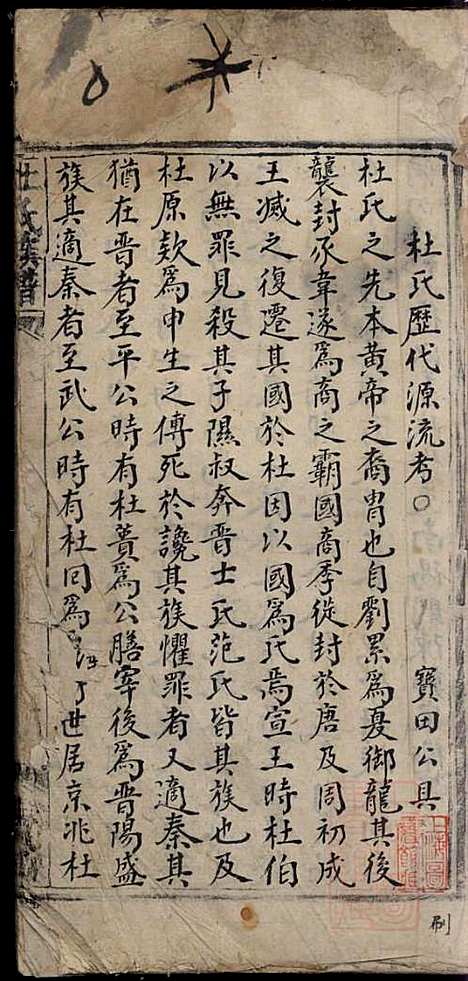 杜氏歷代源流考○ 寶田公具
杜氏之先本黃帝之裔冑也自劉累為夏御龍其後
襲封豕韋遂為商之霸國商季徙封於唐及周初成
王滅之復遷其國於杜因以國為氏焉宣王時杜伯
以無罪見殺其子隰叔奔晉士氏范氏皆其族也及
杜原款為申生之傅死於讒其族懼罪者又適秦其
猶在晉者至平公時有杜蕢為公膳宰後為晉陽盛
族其適秦者至武公時有杜回為 世居京兆杜
杜氏族譜
刷